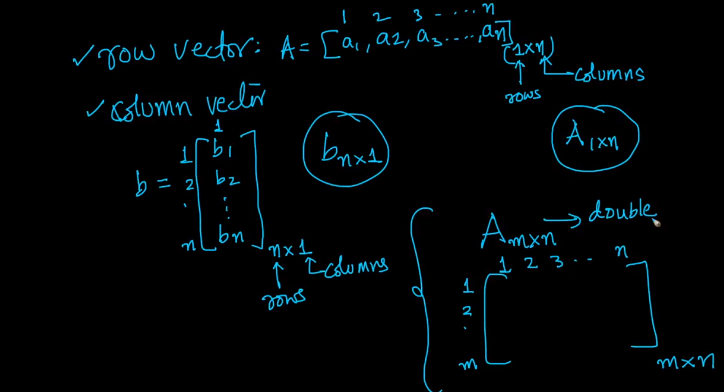 1 2 3 - ... n
✓ row vector: A = [a1, a2, a3 ...., an] (1×n)
rows columns
✓ column vector
1
b = 1 2 . n [b1 b2 ⋮ bn] n×1
rows columns
b n×1
A 1×n
A m×n → double
1 2 3 .. n
1
2
.
m
[ ] m×n